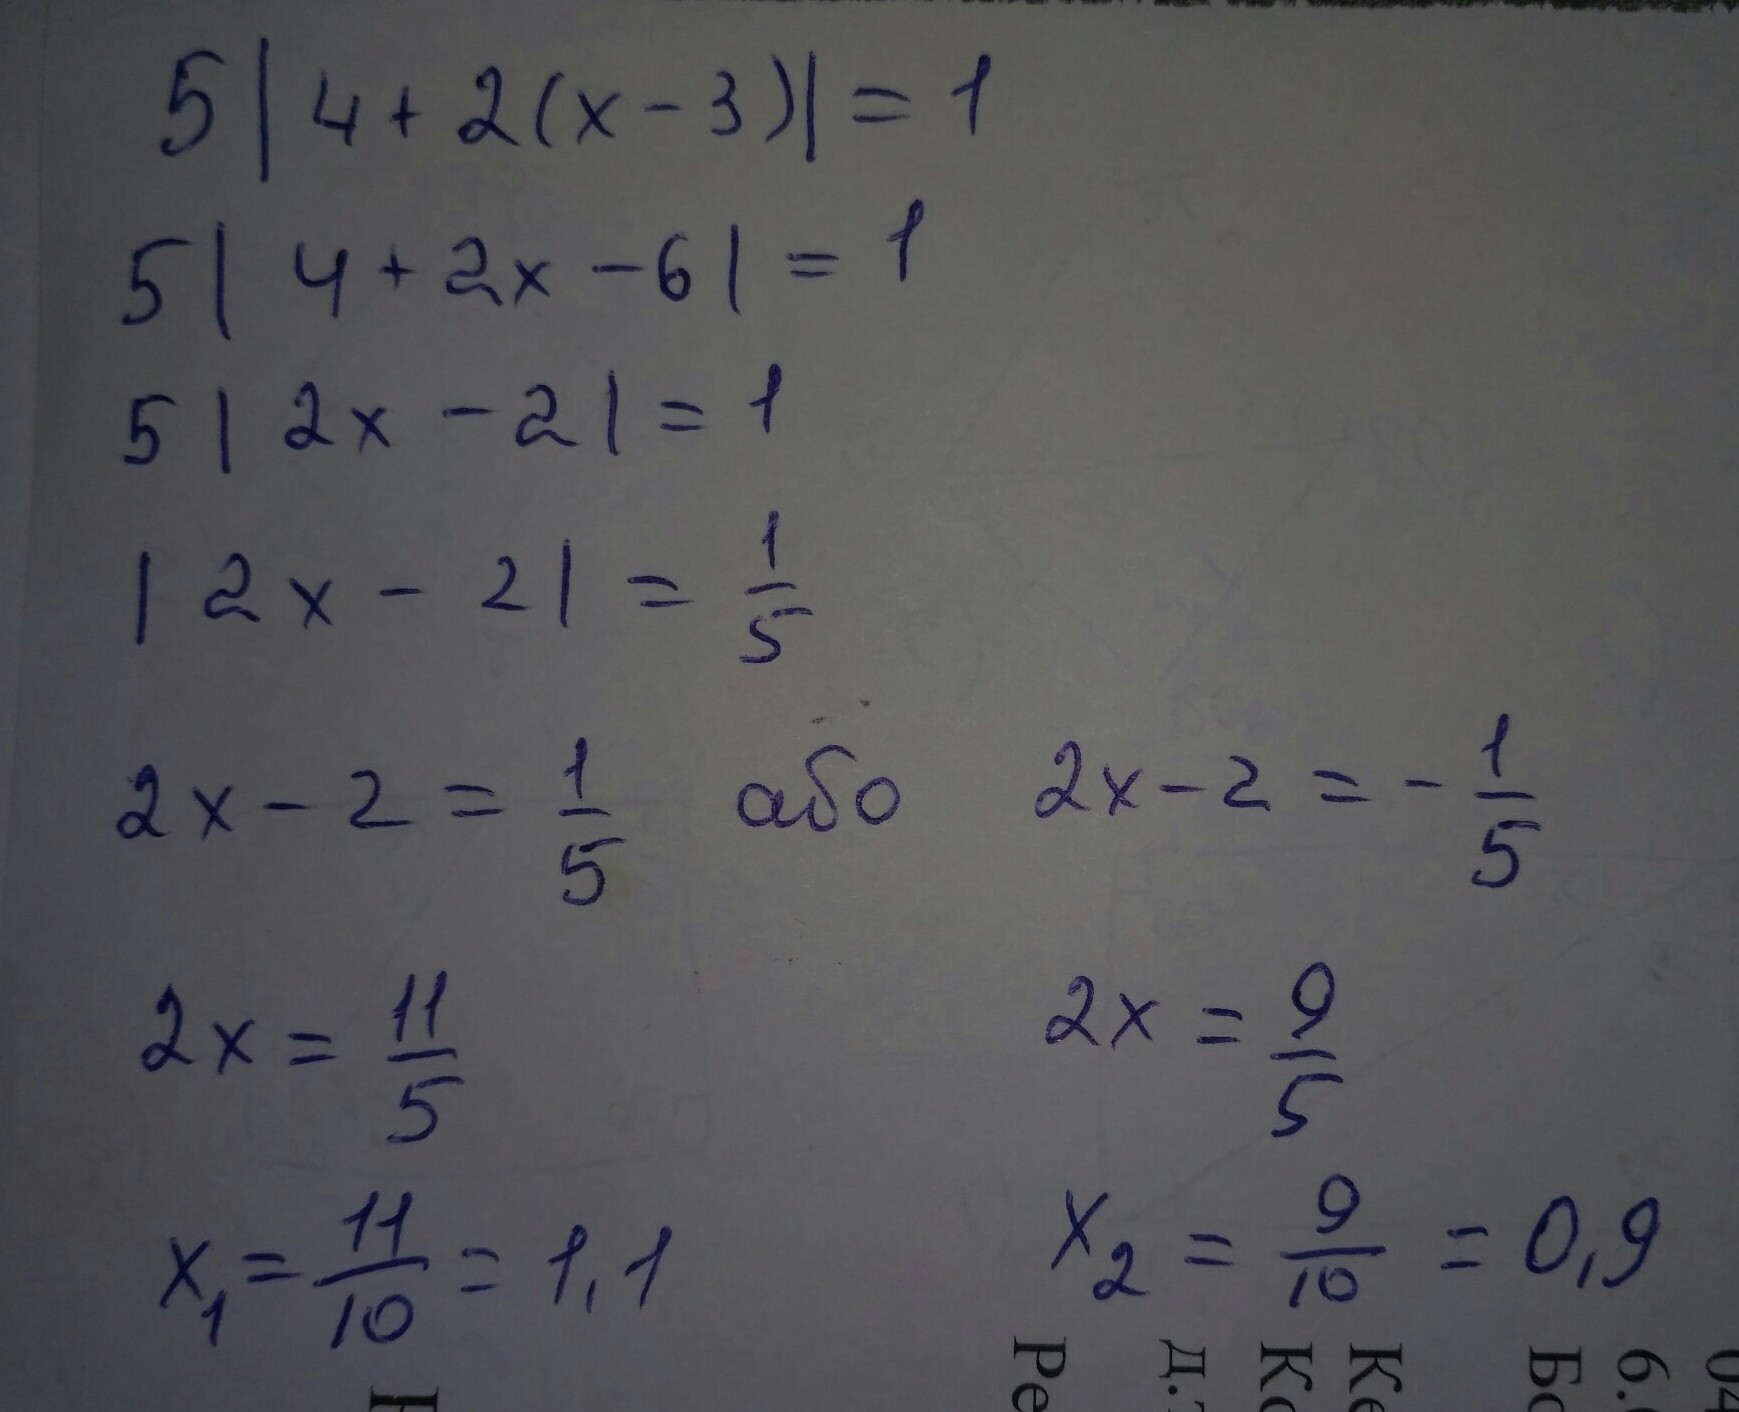 5|4+2(x-3)|=1
5|4+2x-6|=1
5|2x-2|=1
|2x-2|=1/5
2x-2=1/5 або 2x-2=-1/5
2x=11/5 2x=9/5
x₁=11/10=1,1 x₂=9/10=0,9
Ре
Д.
Ко
Ке
Бо
6.
04